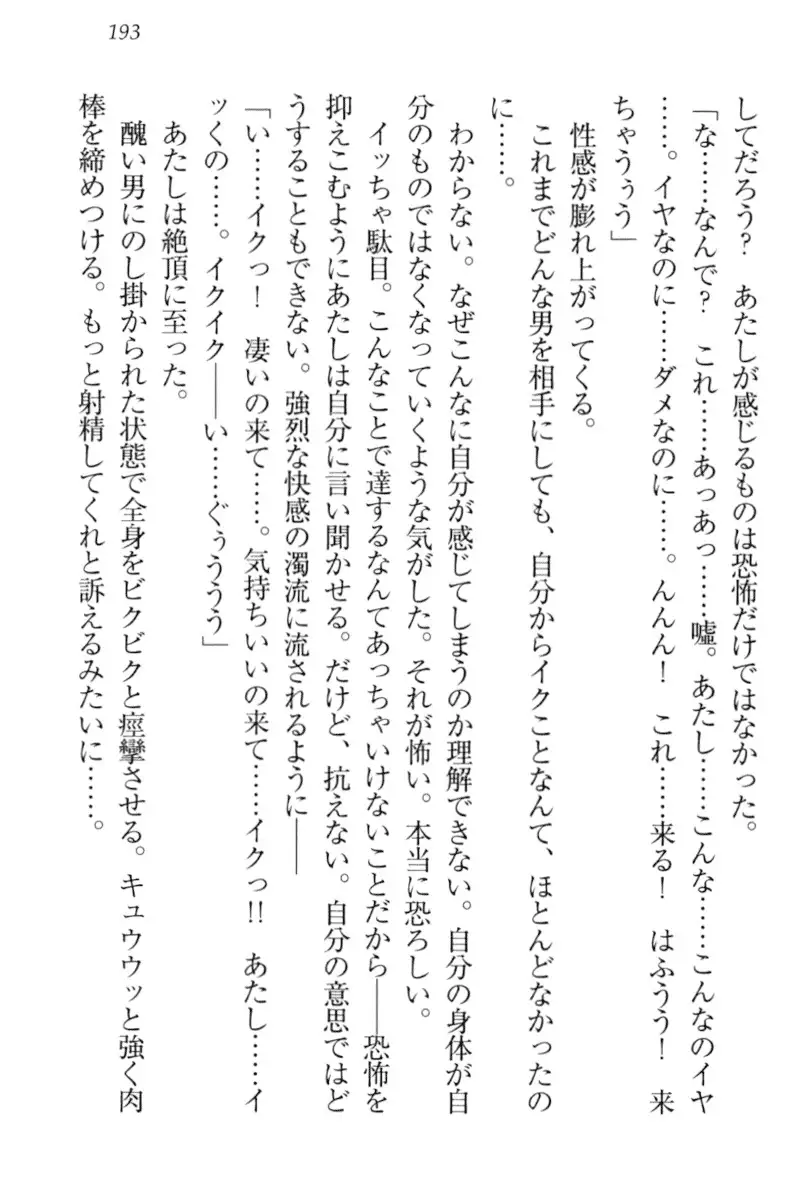 193
してだろう？　あたしが感じるものは恐怖だけではなかった。
「な……なんで？　これ……あっあっ……嘘。あたし……こんな……こんなのイヤ
……。イヤなのに……ダメなのに……。んんん！　これ……来る！　はふうう！　来
ちゃうぅう」
性感が膨れ上がってくる。
これまでどんな男を相手にしても、自分からイクことなんて、ほとんどなかったの
に……。
わからない。なぜこんなに自分が感じてしまうのか理解できない。自分の身体が自
分のものではなくなっていくような気がした。それが怖い。本当に恐ろしい。
イッちゃ駄目。こんなことで達するなんてあっちゃいけないことだから――恐怖を
抑えこむようにあたしは自分に言い聞かせる。だけど、抗えない。自分の意思ではど
うすることもできない。強烈な快感の濁流に流されるように――
「い……イクっ！　凄いの来て……。気持ちいいの来て……イクっ!!　あたし……イ
ッくの……。イクイク――い……ぐぅううう」
あたしは絶頂に至った。
醜い男にのし掛かられた状態で全身をビクビクと痙攣させる。キュウウッと強く肉
棒を締めつける。もっと射精してくれと訴えるみたいに……。